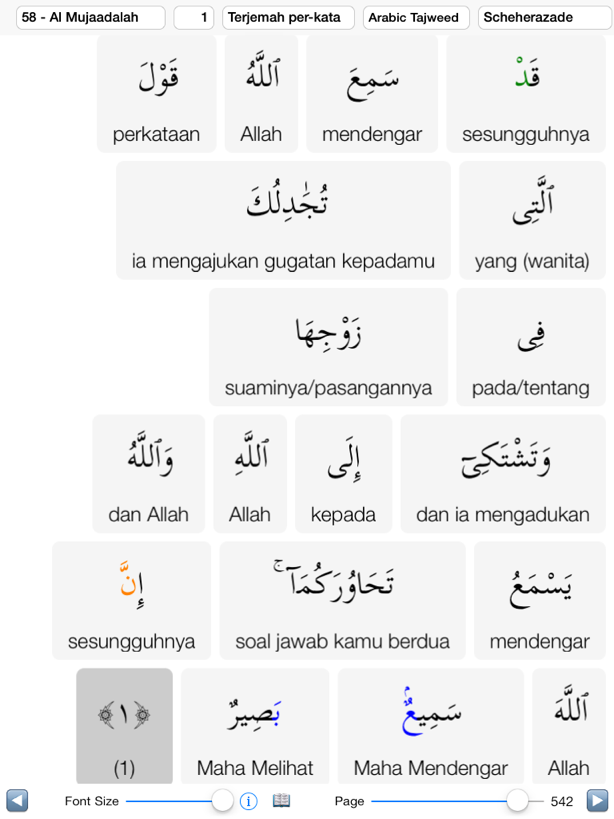 58 - Al Mujaadalah 1 Terjemah per-kata Arabic Tajweed Scheherazade
قَدْ سَمِعَ ٱللَّهُ قَوْلَ
sesungguhnya mendengar Allah perkataan
ٱلَّتِى تُجَٰدِلُكَ
yang (wanita) ia mengajukan gugatan kepadamu
فِى زَوْجِهَا
pada/tentang suaminya/pasangannya
وَتَشْتَكِىٓ إِلَى ٱللَّهِ وَٱللَّهُ
dan ia mengadukan kepada Allah dan Allah
يَسْمَعُ تَحَاوُرَكُمَآ ۚ إِنَّ
mendengar soal jawab kamu berdua sesungguhnya
ٱللَّهَ سَمِيعٌۢ بَصِيرٌ ﴿١﴾
Allah Maha Mendengar Maha Melihat (1)
Font Size Page 542